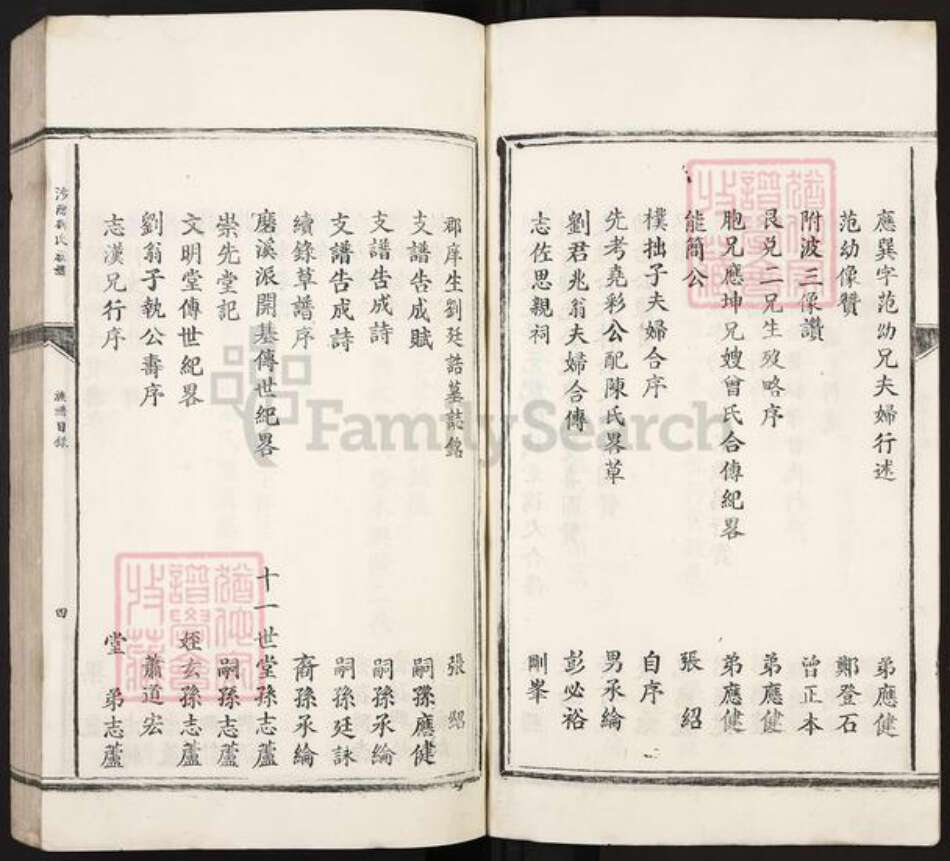 應巽字范幼兄夫婦行述 弟應健
范幼像贊 鄭登石
附波三像讚 曾正本
艮兑二兄生殁略序 弟應健
胞兄應坤兄嫂曾氏合傳紀畧 弟應健
能簡公 張紹
樸拙子夫婦合序 自序
先考堯彩公配陳氏畧草 男承綸
劉君兆翁夫婦合傳 彭必裕
志佐思親祠 剛峯
郡庠生劉廷誥墓誌銘 張紹
支譜告成賦 嗣孫應健
支譜告成詩 嗣孫承綸
支譜告成詩 嗣孫廷詠
續錄草譜序 裔孫承綸
磨溪派開基傳世紀畧 十一世堂孫志蘆
崇先堂記 嗣孫志蘆
文明堂傳世紀畧 姪玄孫志蘆
劉翁子執公壽序 蕭道宏
志漢兄行序 堂弟志蘆
劉氏族譜
族譜目錄
四
FamilySearch